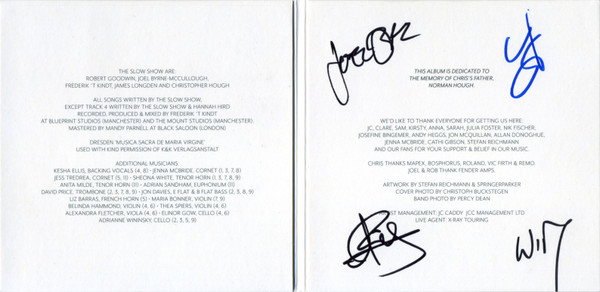 THE SLOW SHOW ARE:
ROBERT GOODWIN, JOEL BYRNE-MCCULLOUGH,
FREDERIK 'T KINDT, JAMES LONGDEN AND CHRISTOPHER HOUGH
ALL SONGS WRITTEN BY THE SLOW SHOW,
EXCEPT TRACK 4 WRITTEN BY THE SLOW SHOW & HANNAH HIRD
RECORDED, PRODUCED & MIXED BY FREDERIK 'T KINDT
AT BLUEPRINT STUDIOS (MANCHESTER) AND THE MOUNT STUDIOS (MANCHESTER)
MASTERED BY MANDY PARNELL AT BLACK SALOON (LONDON)
DRESDEN 'MUSICA SACRA DE MARIA VIRGINE'
USED WITH KIND PERMISSION OF K&K VERLAGSANSTALT
ADDITIONAL MUSICIANS:
KESHA ELLIS, BACKING VOCALS (4, 8) · JENNA MCBRIDE, CORNET (1, 3, 7, 8)
JESS TREDREA, CORNET (5, 11) · SHEONA WHITE, TENOR HORN (1, 3, 7, 8, 9)
ANITA MILDE, TENOR HORN (11) · ADRIAN SANDHAM, EUPHONIUM (11)
DAVID PRICE, TROMBONE (2, 3, 7, 8, 9) · JON DAVIES, E FLAT & B FLAT BASS (2, 3, 8, 9)
LIZ BARKAS, FRENCH HORN (5) · MARIA BONNER, VIOLIN (7, 9)
BELINDA HAMMOND, VIOLIN (4, 6) · THEA SPIERS, VIOLIN (4, 6)
ALEXANDRA FLETCHER, VIOLA (4, 6) · ELINOR GOW, CELLO (4, 6)
ADRIANNE WININSKY, CELLO (2, 3, 5, 9)
THIS ALBUM IS DEDICATED TO
THE MEMORY OF CHRIS'S FATHER,
NORMAN HOUGH
WE'D LIKE TO THANK EVERYONE FOR GETTING US HERE:
JC, CLARE, SAM, KIRSTY, ANNA, SARAH, JULIA FOSTER, NIK FISCHER,
JOSEFINE BINGEMER, ANDY HEGGS, JON MCQUILLAN, ALLAN DONOGHUE,
JENNA MCBRIDE, CATHI GIBSON, STEFAN REICHMANN
AND OUR FANS FOR YOUR SUPPORT & BELIEF IN OUR MUSIC.
CHRIS THANKS MAPEX, BOSPHORUS, ROLAND, VIC FIRTH & REMO
JOEL & ROB THANK FENDER AMPS.
ARTWORK BY STEFAN REICHMANN & SPRINGERPARKER
COVER PHOTO BY CHRISTOPH BUCKSTEGEN
BAND PHOTO BY PERCY DEAN
MANAGEMENT: JC CADDY JCC MANAGEMENT LTD
LIVE AGENT: X-RAY TOURING